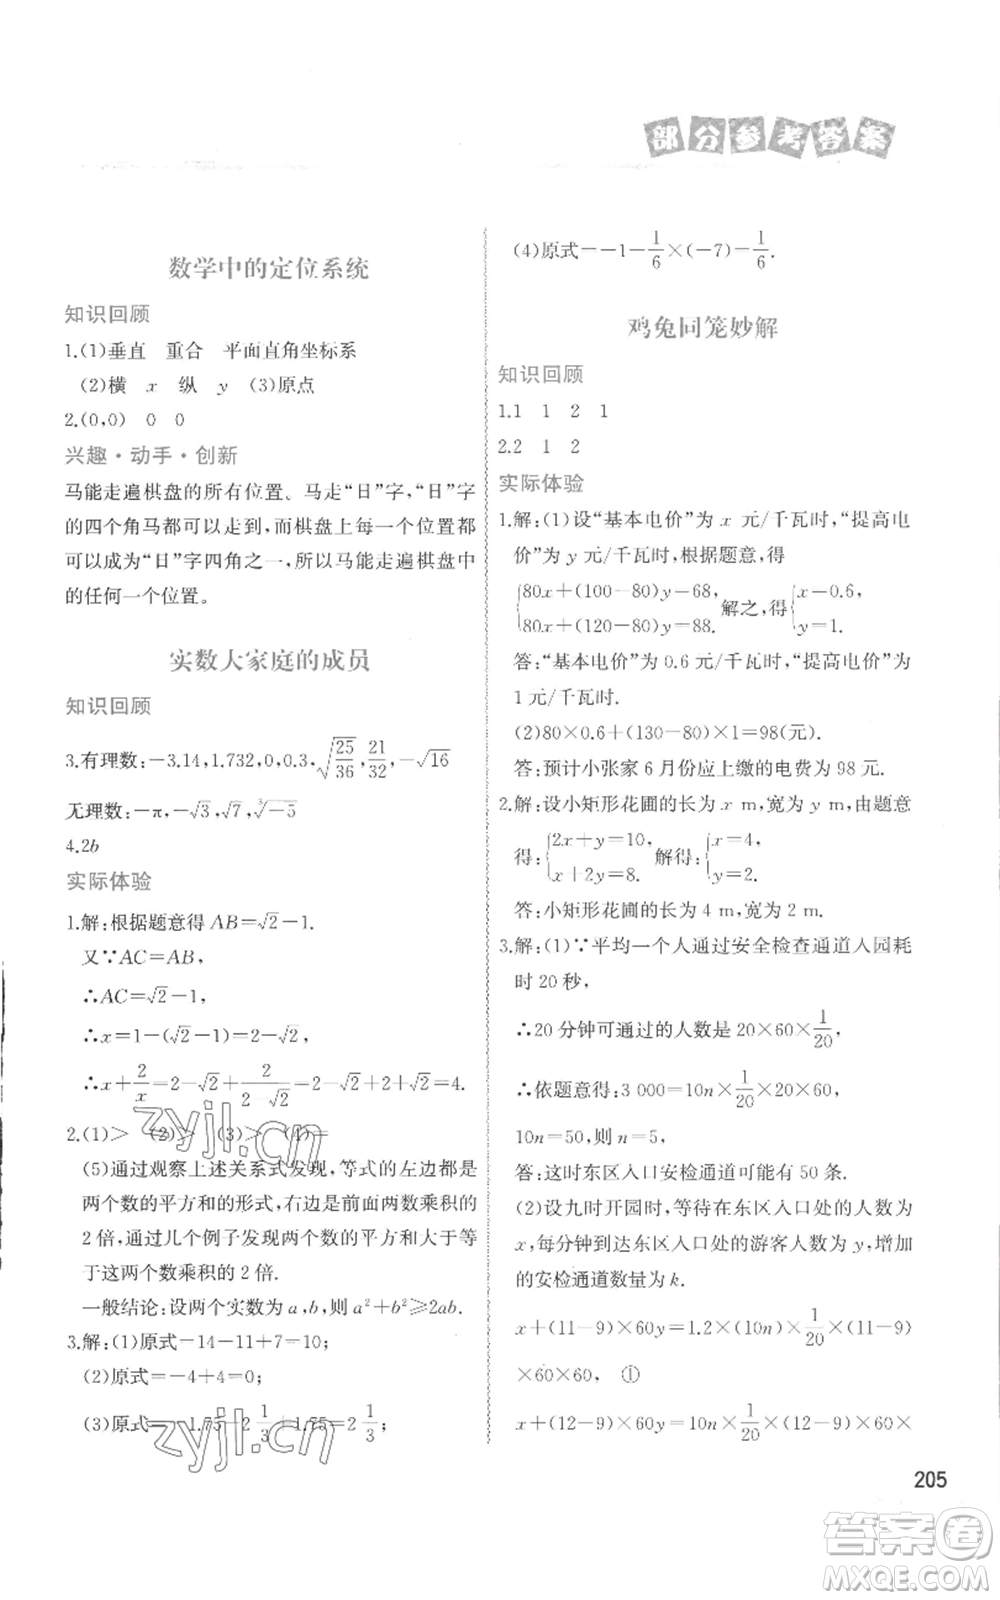 部分参考答案
数学中的定位系统
知识回顾
1.(1)垂直　重合　平面直角坐标系
(2)横　x　纵　y　(3)原点
2.(0,0)　0　0
兴趣·动手·创新
马能走遍棋盘的所有位置。马走“日”字，“日”字
的四个角马都可以走到，而棋盘上每一个位置都
可以成为“日”字四角之一，所以马能走遍棋盘中
的任何一个位置。
实数大家庭的成员
知识回顾
3.有理数：－3.14，1.732，0，0.3·√(25/36)，21/32，－√16
无理数：－π，－√3，√7，∛－5
4.2b
实际体验
1.解：根据题意得 AB＝√2－1.
又∵AC＝AB，
∴AC＝√2－1，
∴x＝1－(√2－1)＝2－√2，
∴x＋2/x＝2－√2＋2/(2－√2)＝2－√2＋2＋√2＝4.
2.(1)＞　(2)＞　(3)＞　(4)＝
(5)通过观察上述关系式发现，等式的左边都是
两个数的平方和的形式，右边是前面两数乘积的
2倍，通过几个例子发现两个数的平方和大于等
于这两个数乘积的 2 倍.
一般结论：设两个实数为 a,b，则 a²＋b²≥2ab.
3.解：(1)原式＝14－11＋7＝10；
(2)原式＝－4＋4＝0；
(3)原式＝1.75－2 1/3－1.75＝2 1/3；
(4)原式＝－1－1/6×(－7)＝1/6.
鸡兔同笼妙解
知识回顾
1.1　1　2　1
2.2　1　2
实际体验
1.解：(1)设“基本电价”为 x 元/千瓦时，“提高电
价”为 y 元/千瓦时，根据题意，得
{80x＋(100－80)y＝68, 80x＋(120－80)y＝88. 解之，得{x＝0.6, y＝1.
答：“基本电价”为 0.6 元/千瓦时，“提高电价”为
1 元/千瓦时.
(2)80×0.6＋(130－80)×1＝98(元).
答：预计小张家 6 月份应上缴的电费为 98 元.
2.解：设小矩形花圃的长为 x m，宽为 y m，由题意
得：{2x＋y＝10, x＋2y＝8. 解得：{x＝4, y＝2.
答：小矩形花圃的长为 4 m，宽为 2 m.
3.解：(1)∵平均一个人通过安全检查通道入园耗
时 20 秒，
∴20 分钟可通过的人数是 20×60×1/20，
∴依题意得：3 000＝10n×1/20×20×60，
10n＝50，则 n＝5，
答：这时东区入口安检通道可能有 50 条.
(2)设九时开园时，等待在东区入口处的人数为
x，每分钟到达东区入口处的游客人数为 y，增加
的安检通道数量为 k.
x＋(11－9)×60y＝1.2×(10n)×1/20×(11－9)
×60×60，　①
x＋(12－9)×60y＝10n×1/20×(12－9)×60×
205
zyjl.cn
zyjl.cn
答案圈
MXQE.COM